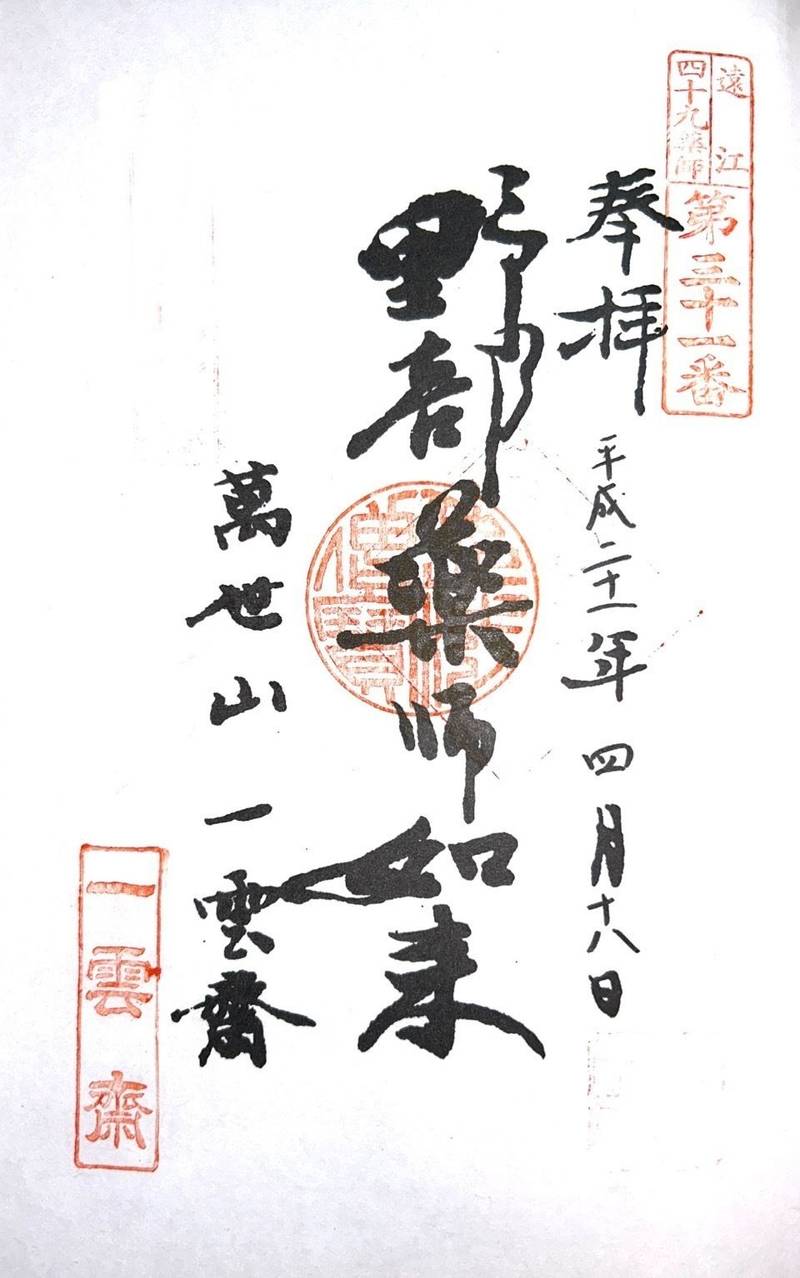 遠江
四十九薬師
第三十一番
奉拝
平成二十一年四月十八日
野部薬師如来
萬世山一雲齋
一雲斎